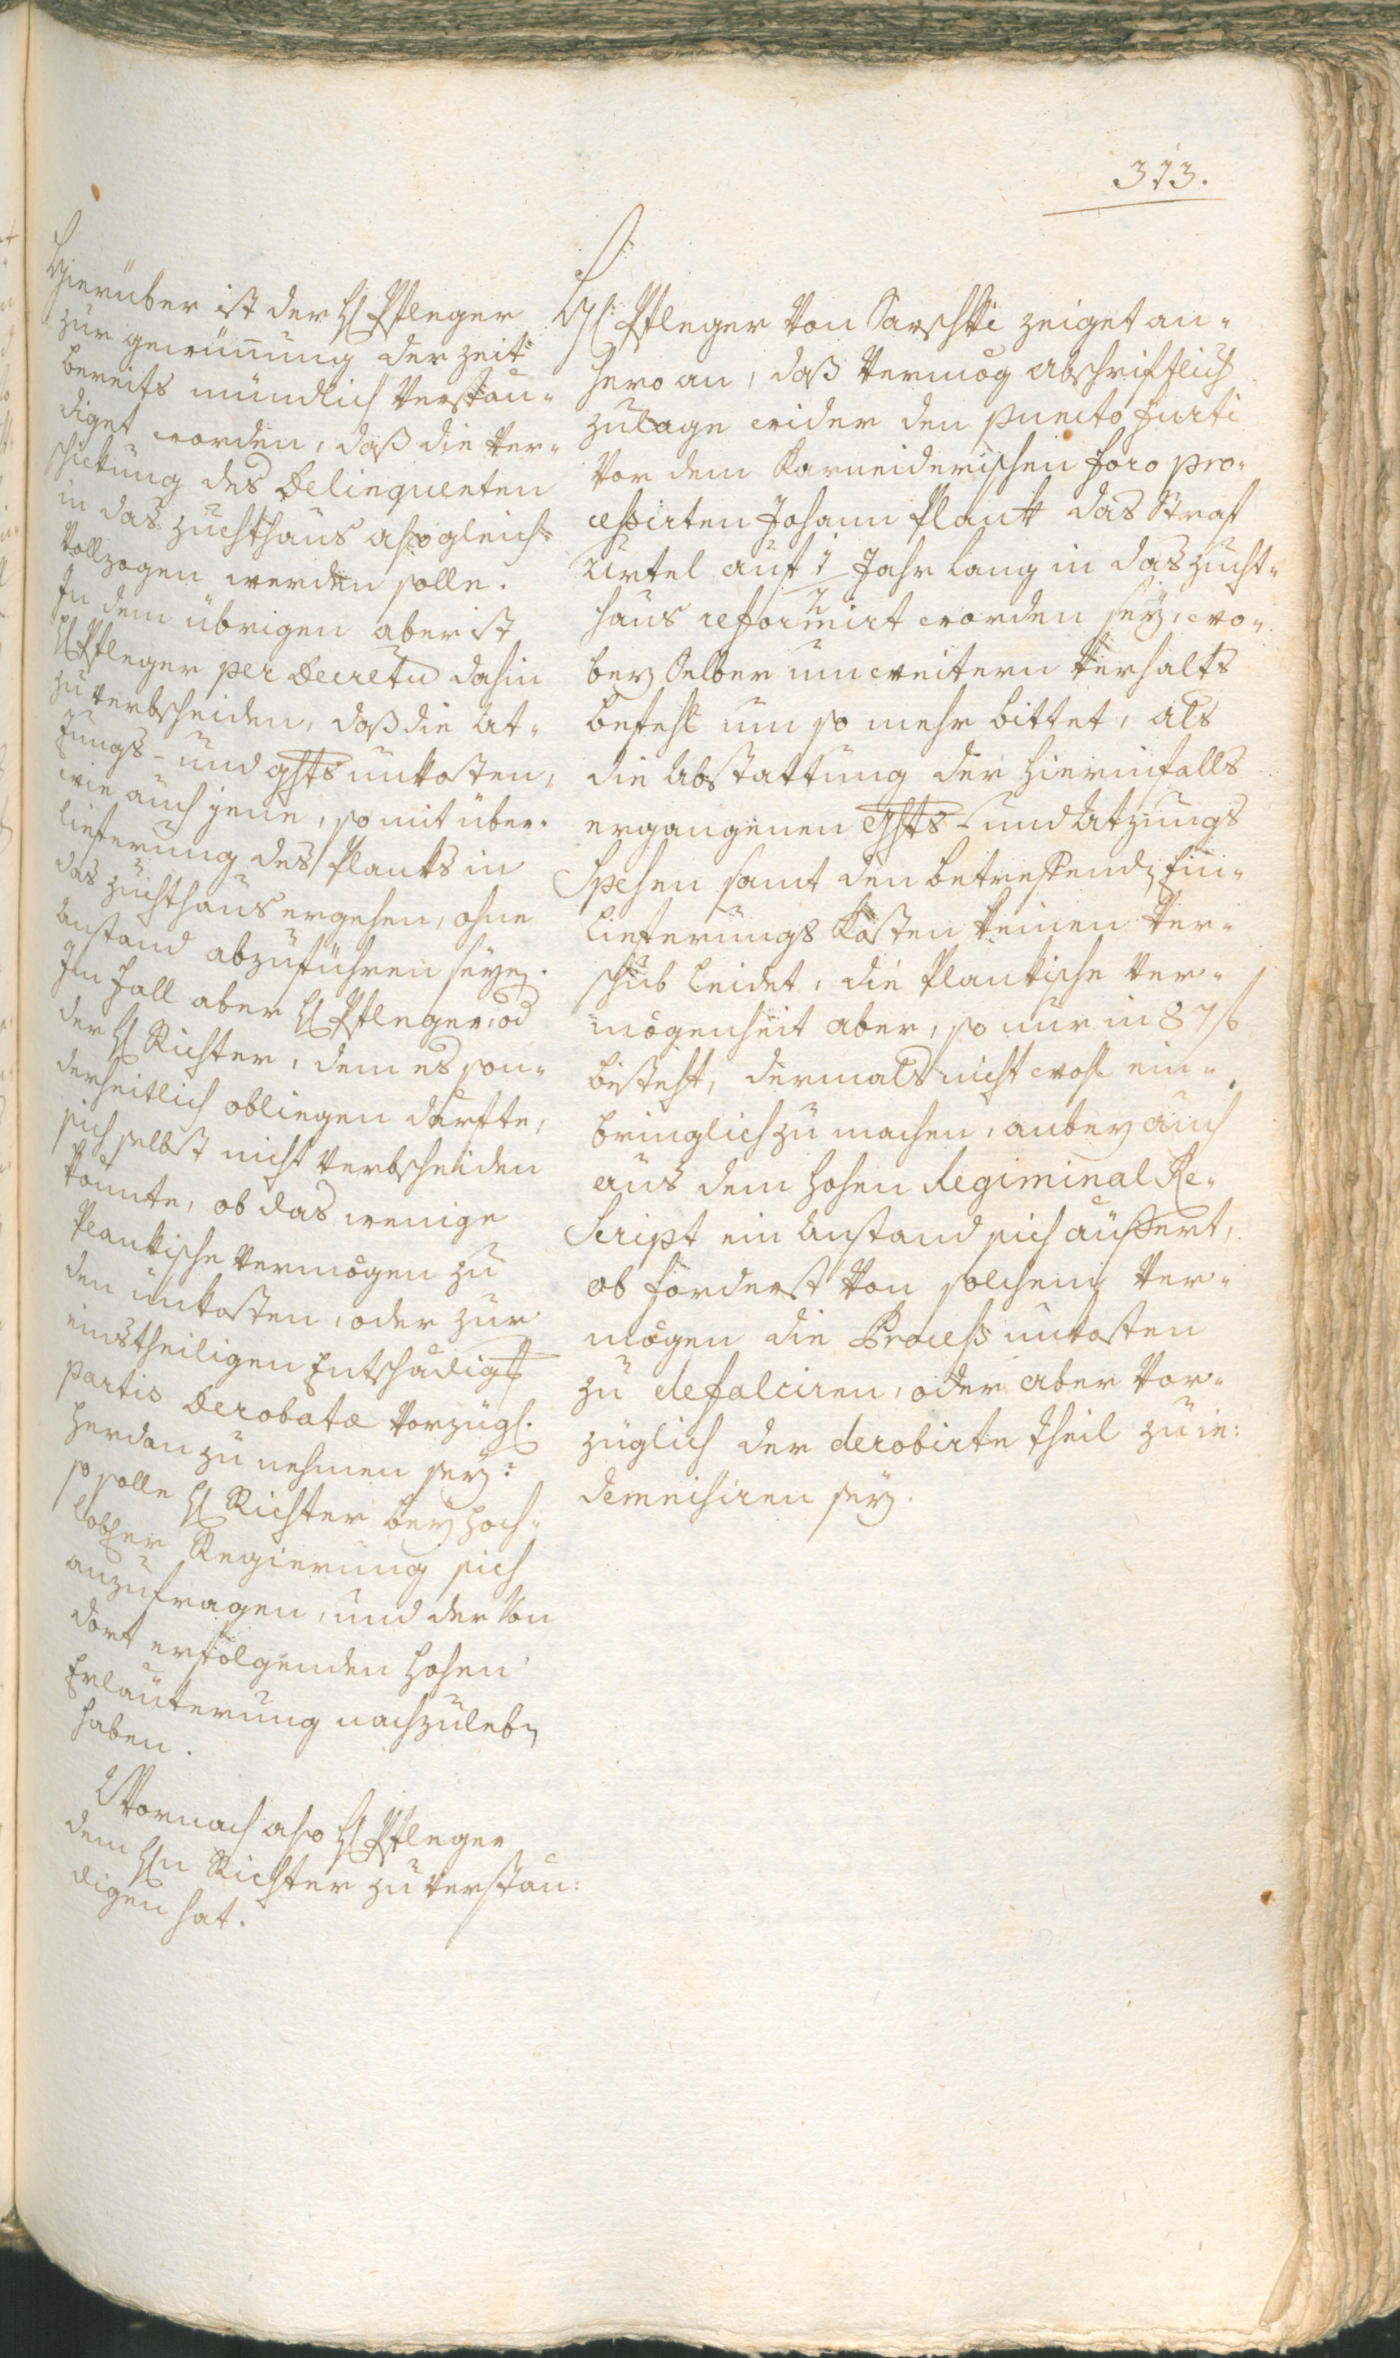 313.
Hierüber ist der H Pfleger
zur gewinnung der zeit
bereits mündlich Verstän-
diget worden, daß die Ver-
schickung des Delinquenten
in das zuchthaus also gleich
Vollzogen werden solle.
In dem übrigen aber ist
H Pfleger per Decretu dahin
zu verbscheiden, daß die At-
zungs- und ghts unkosten,
wie auch jene, so mit über-
lieferung des Planks in
das zuchthaus ergehen, ohne
Anstand abzuführen seyen.
Im fall aber H Pfleger, od
der H Richter, dem es son-
derheitlich obliegen därfte,
sich selbst nicht verbscheiden
könnte, ob das wenige
Plankische Vermögen zu
den unkosten, oder zur
einstheiligen Entschädigg
partis Derobatæ Vorzügl.
herdan zu nehmen sey?
so solle H Richter bey hoch-
lober Regierung sich
anzufragen, und der Von
dort erfolgenden hohen
Erläuterung nachzuleben
haben.
Wornach also H Pfleger
dem Hn Richter zu verstän:
digen hat.
H: Pfleger Von Sarnthei zeiget an-
hero an, daß Vermög abschriftlich
zulage wider den puncto furti
Vor dem Karneiderischen foro pro-
cessirten Johann Plankh das Straf
Urtel auf 1 Jahr lang in das zucht-
haus reformirt worden sey, wo-
bey Selber um weitern Verhalts
befehl um so mehr bittet, als
die Abstattung der hierinfalls
ergangenen Ghts- und Atzungs
Spesen samt den betreffenden Ein-
lieferungs Kösten keinen Ver-
schub leidet, die Plankische Ver-
mögenheit aber, so nur in 87 f
besteht, dermals nicht wohl ein-
bringlich zu machen, anbey auch
aus dem hohen Regiminal Re-
Script ein Anstand sich äussert,
ob förderst Von solchem Ver-
mögen die Process unkosten
zu defalciren, oder aber Vor-
züglich der derobirte theil zu in:
demnisiren sey.